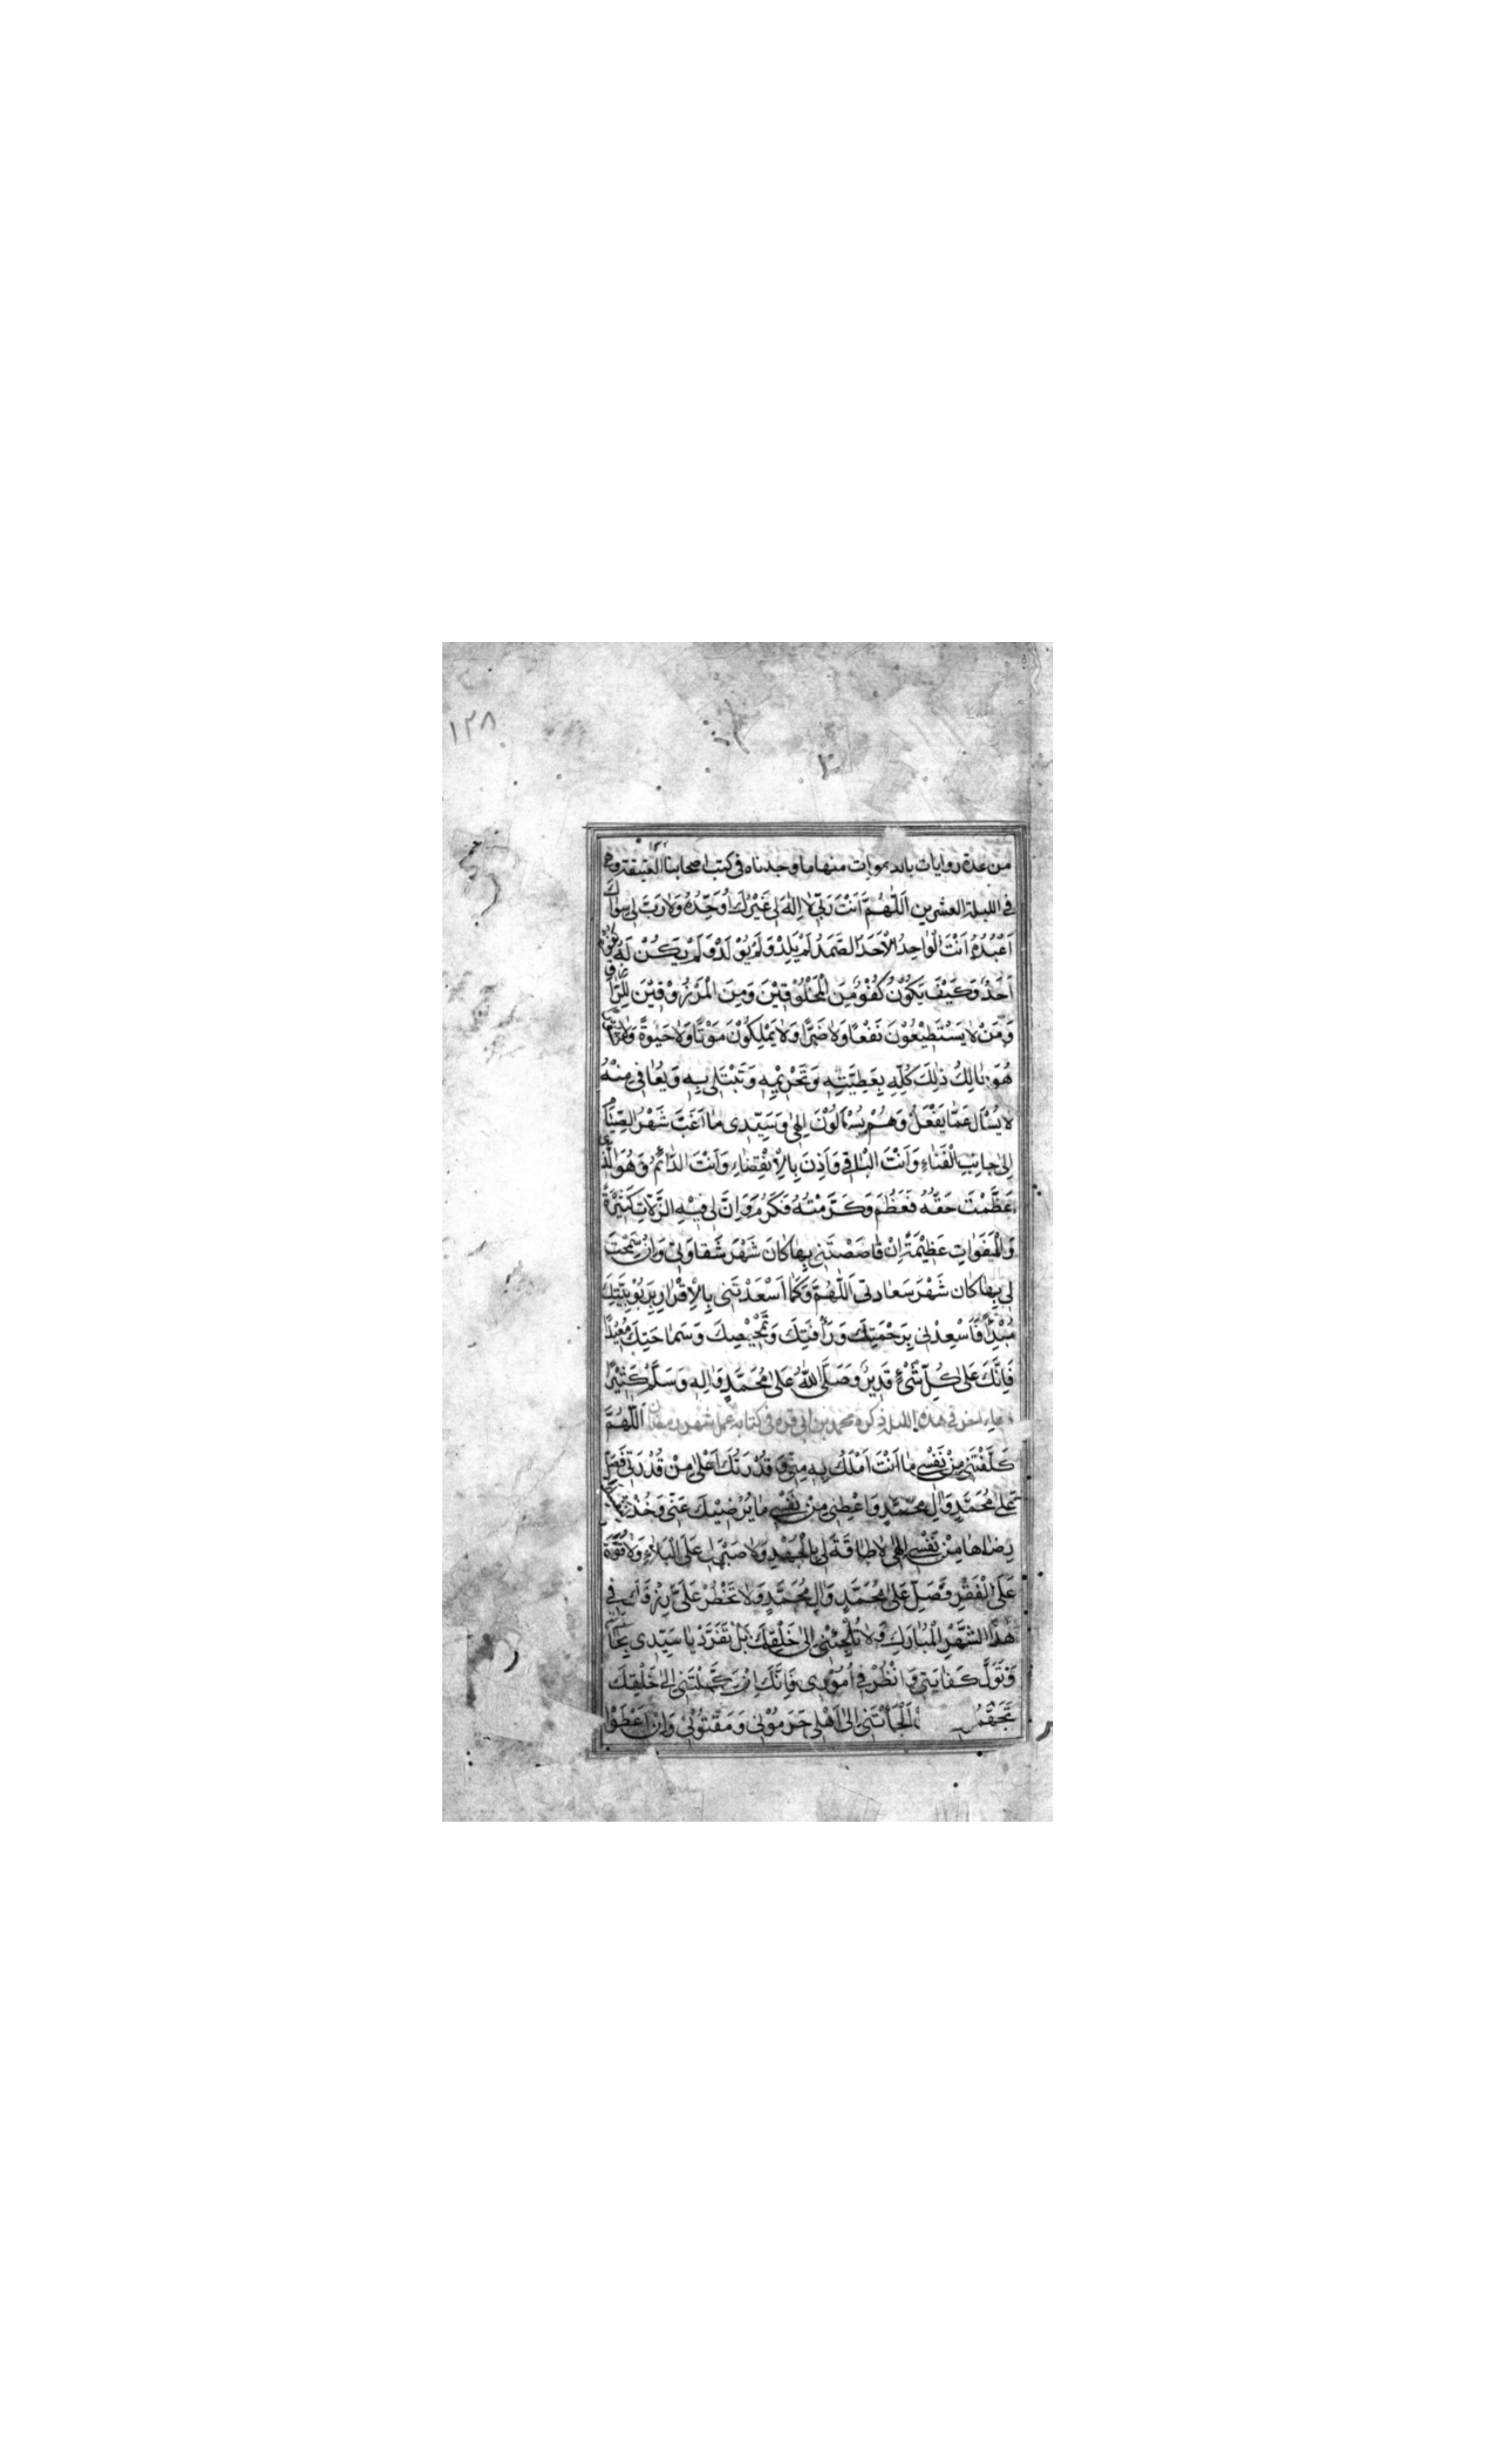 ١٢٨
من عدة روايات بالدعوات منها ما وجدناه في كتب اصحابنا العتيقة وهي
في الليلة العشرين اَللّٰهُمَّ اَنْتَ رَبّي لا اِلٰهَ لي غَيْرُكَ اُوَحِّدُهُ وَلا رَبَّ لي سِواكَ
اَعْبُدُهُ اَنْتَ الْواحِدُ الْاَحَدُ الصَّمَدُ لَمْ يَلِدْ وَلَمْ يُوْلَدْ وَلَمْ يَكُنْ لَهُ كُفُوًا
اَحَدٌ وَكَيْفَ يَكُوْنُ كُفْوٌ مِنَ الْمَخْلُوْقِيْنَ وَمِنَ الْمَرْزُوْقِيْنَ لِلرّازِقِ
وَمَنْ لا يَسْتَطِيْعُوْنَ نَفْعًا وَلا ضَرًّا وَلا يَمْلِكُوْنَ مَوْتًا وَلا حَيٰوةً وَلا نُشُوْرًا
هُوَ مالِكُ ذٰلِكَ كُلِّهِ بِعَطِيَّتِهِ وَتَحْرِيْمِهِ وَيَبْتَلي بِهِ وَيُعافي مِنْهُ
لا يُسْاَلُ عَمّا يَفْعَلُ وَهُمْ يُسْاَلُوْنَ اِلٰهي وَسَيِّدي ما اَغَبَّ شَهْرُ الصِّيامِ
اِلٰى جانِبِ الْفَناءِ وَاَنْتَ الْباقي وَاَذِنَ بِالْاِنْقِضاءِ وَاَنْتَ الدّائِمُ وَهُوَ الَّذي
عَظَّمْتَ حَقَّهُ فَعَظُمَ وَكَرَّمْتَهُ فَكَرُمَ وَاِنَّ لي فيْهِ الزَّلّاتِ كَثِيْرَةً
وَالْهَفَواتِ عَظِيْمَةً اِنْ قاصَصْتَني بِها كانَ شَهْرَ شَقاوَتي وَاِنْ سَمَحْتَ
لي بِها كانَ شَهْرَ سَعادَتي اَللّٰهُمَّ وَكَما اَسْعَدْتَني بِالْاِقْرارِ بِرَبُوْبِيَّتِكَ
مُبْدِئًا فَاَسْعِدْني بِرَحْمَتِكَ وَرَأْفَتِكَ وَتَمْحِيْصِكَ وَسَماحَتِكَ مُعِيْدًا
فَاِنَّكَ عَلٰى كُلِّ شَيْءٍ قَدِيْرٌ وَصَلَّى اللّٰهُ عَلٰى مُحَمَّدٍ وَاٰلِهِ وَسَلَّمَ كَثِيْرًا
دعاء اخر في هذه الليلة ذكره محمد بن ابي قره في كتابه عمل شهر رمضان اَللّٰهُمَّ
كَلَّفْتَني مِنْ نَفْسي ما اَنْتَ اَمْلَكُ بِهِ مِنّي وَقُدْرَتُكَ اَعْلٰى مِنْ قُدْرَتي فَصَلِّ
عَلٰى مُحَمَّدٍ وَاٰلِ مُحَمَّدٍ وَاَعْطِني مِنْ نَفْسي ما يُرْضِيْكَ عَنّي وَخُذْ لِنَفْسِكَ
رِضاها مِنْ نَفْسي اِلٰهي لا طاقَةَ لي بِالْجَهْدِ وَلا صَبْرَ لي عَلَى الْبَلاءِ وَلا قُوَّةَ
عَلَى الْفَقْرِ فَصَلِّ عَلٰى مُحَمَّدٍ وَاٰلِ مُحَمَّدٍ وَلا تَحْظُرْ عَلَيَّ رِزْقَكَ في
هٰذَا الشَّهْرِ الْمُبارَكِ وَلا تُلْجِئْني اِلٰى خَلْقِكَ بَلْ تَفَرَّدْ يا سَيِّدي بِحاجَتي
وَتَوَلَّ كَفايَتي وَانْظُرْ في اُمُوْري فَاِنَّكَ اِنْ وَكَلْتَني اِلٰى خَلْقِكَ
تَجَهَّمُوني اَلْجَأْتَني اِلٰى اَهْلي حَرَمُوْني وَمَقَتُوْني وَاِنْ اَعْطَوْا